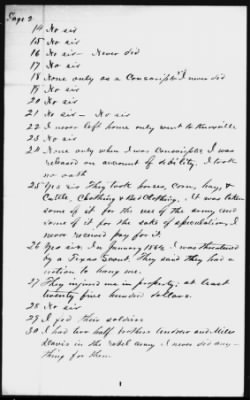 Page 2
14 No sir
15 No sir
16 No sir - Never did
17 No sir
18 None only as a Conscript I never did
19 No sir
20 No sir
21 No sir - No sir
22 I never left home only went to
23 No sir
24 None only when I was Conscripted I was
released on account of debility. I took
no oath
25 Yes sir They took horses, Corn, hay &
Cattle, Clothing & Bed Clothing. It was taken
some of it for the use of the army and
some of it for the sake of speculation, I
never received pay for it.
26 Yes sir. In January 1864 I was threatened
by a Texas Scout. They said they had a
notion to hang me.
27 They injured me in property, at least
twenty five hundred dollars.
28 No sir
29 I fed their soldiers
30 I had two half brothers and Miles
Davis in the rebel army I never did any-
thing for them.
1